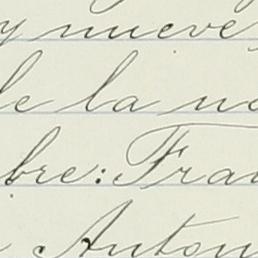 y nueve
de la no
bre: Fran
Anton